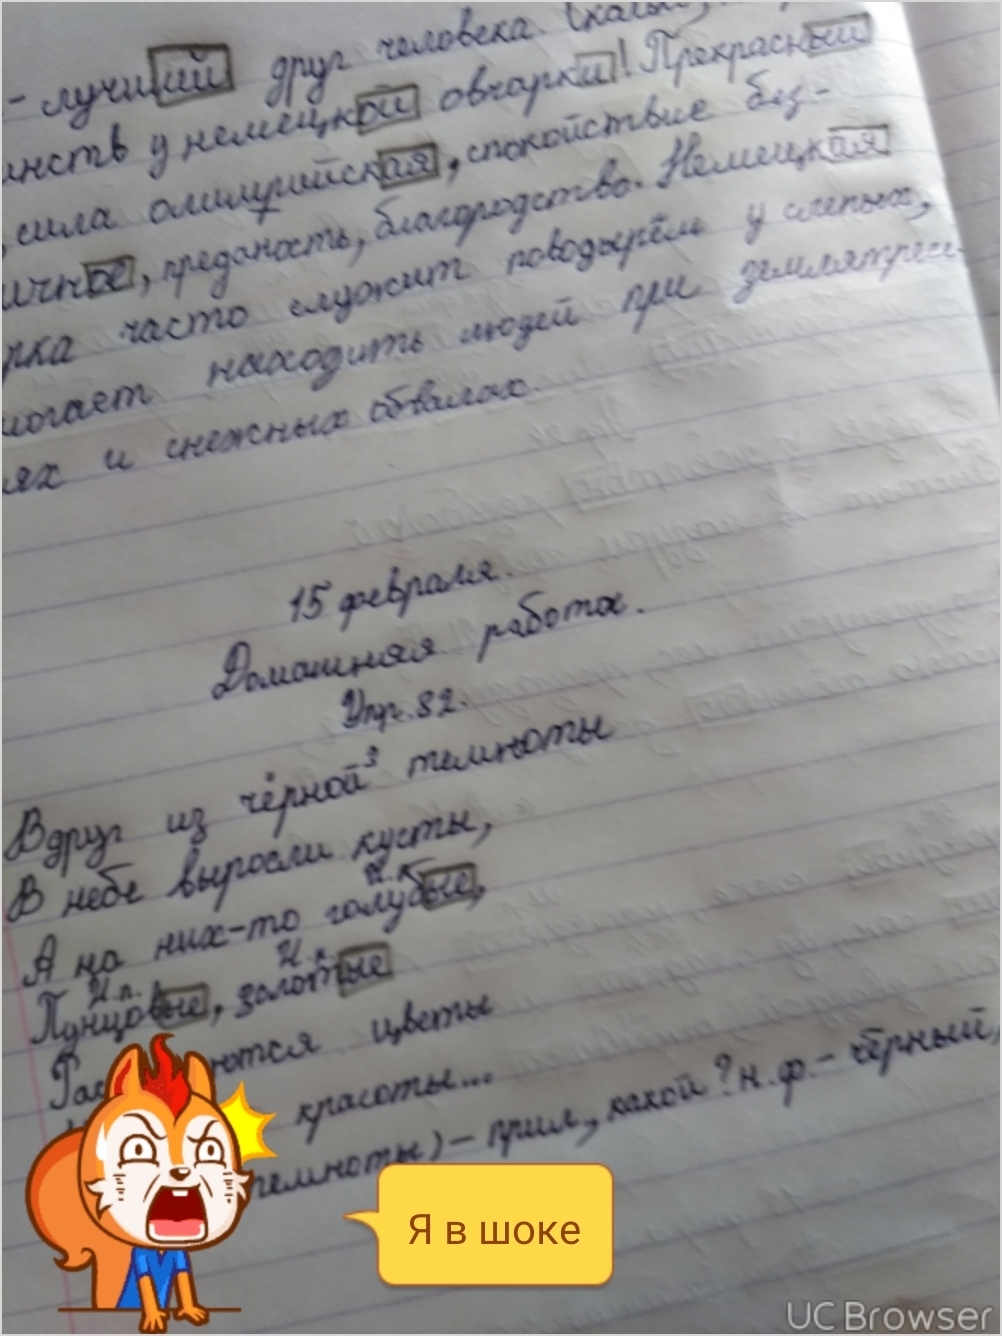 друг человека.
инств у немецкой овчарки! Прекрасный
, сила олимпийская, спокойствие без-
ичное, преданость, благородство. Немецкая
рка часто служит поводырём у слепых,
могает находить людей при землятресе-
ях и снежных обвалах.
15 февраля.
Домашняя работа.
Упр. 82.
Вдруг из чёрной³ темноты
В небе выросли кусты,
И.п.
А на них-то голубые,
И.п. И.п.
Пунцовые, золотые
ются цветы
красоты...
темноты) – прил., какой? н.ф. – чёрный,
Я в шоке
UC Browser